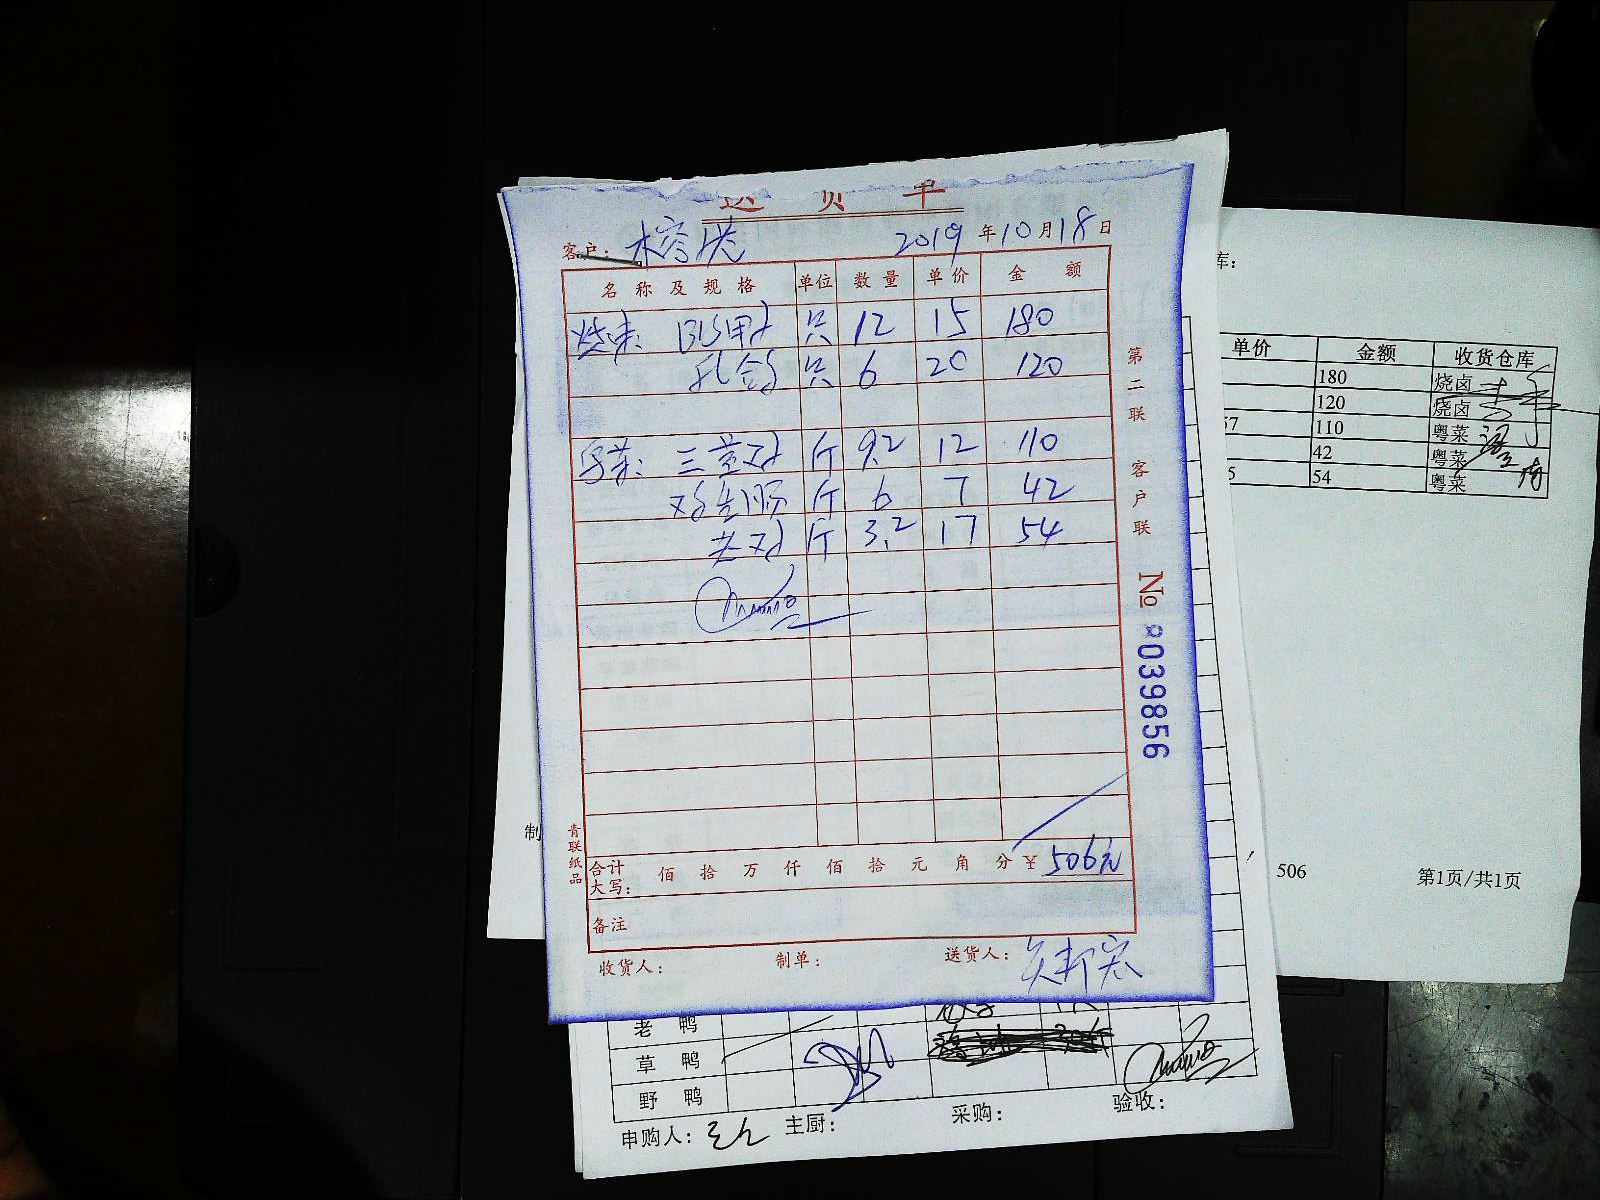 送货单
客户： 榕港 2019年10月18日
名称及规格 单位 数量 单价 金额
烧味： 只 12 15 180
乳鸽 只 6 20 120
粤菜： 三黄鸡 斤 9.2 12 110
斤 6 7 42
老鸡 斤 3.2 17 54
合计大写： 佰 拾 万 仟 佰 拾 元 角 分 ￥ 506元
备注
收货人： 制单： 送货人：
第二联 客户联
№ 8039856
青联纸品
库：
单价 金额 收货仓库
180 烧卤
120 烧卤
57 110 粤菜
42 粤菜
5 54 粤菜
制
506 第1页/共1页
老鸭
草鸭
野鸭
申购人： 主厨： 采购： 验收：